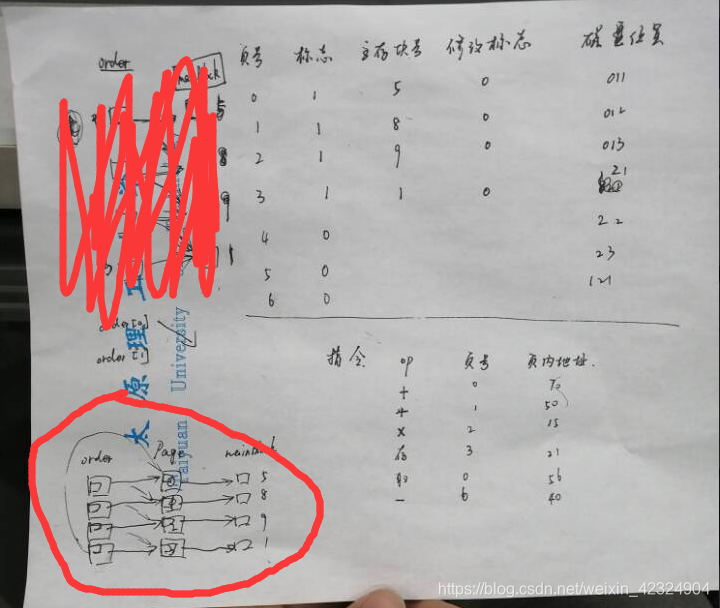 order 页号 标志 主存块号 修改标志 磁盘位置
0 1 5 0 011
1 1 8 0 012
2 1 9 0 013
3 1 1 0 21
4 0 22
5 0 23
6 0 121
order[0]
order[1]
太原理工
Taiyuan University
指令 op 页号 页内地址.
+ 0 70
+ 1 50
× 2 15
存 3 21
0 56
- 6 40
order Page
5
8
9
1
https://blog.csdn.net/weixin_42324904